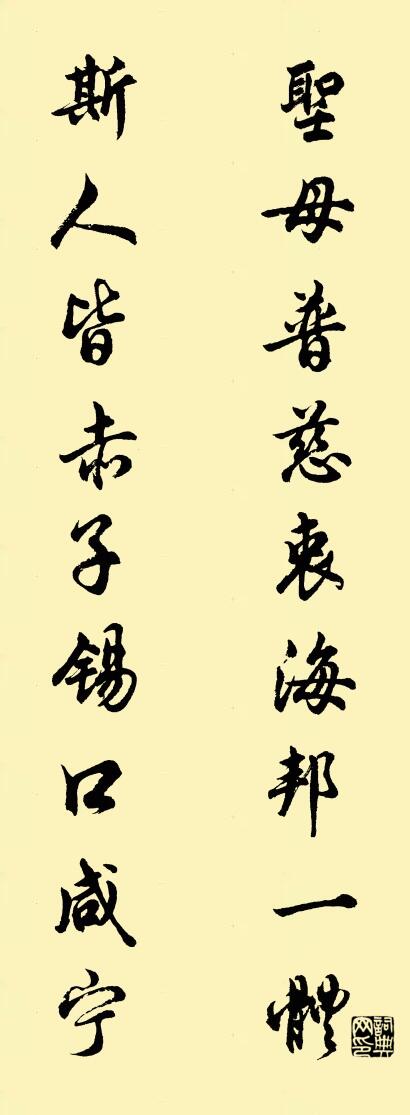 聖母普慈衷海邦一體
斯人皆赤子錫口咸宁
詞典网印